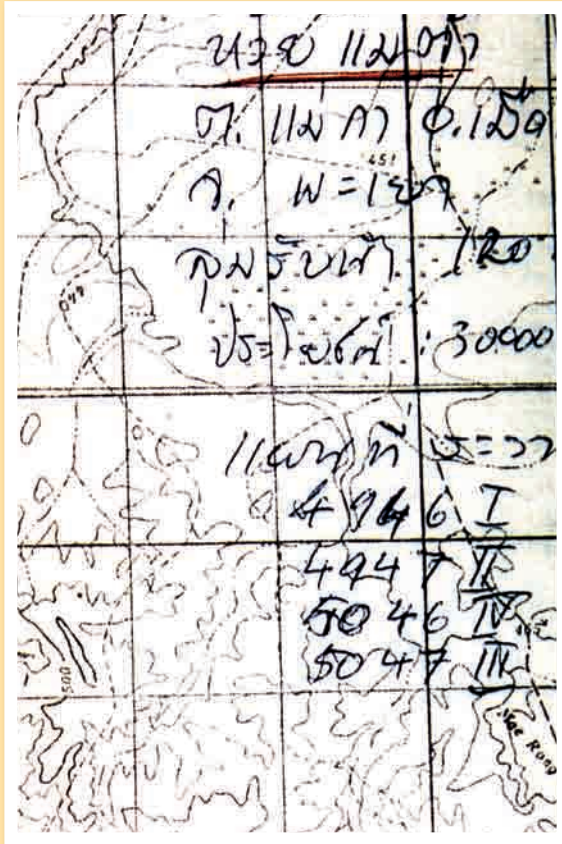 ห้วย แม่ต๋ำ
ต. แม่กา อ.เมือ
จ. พะเยา
ลุ่มรับน้ำ 120
ประโยชน์ : 30000
แผนที่ ระวา
4946 I
4947 II
5046 IV
5047 III
451
440
500
Mae Rong